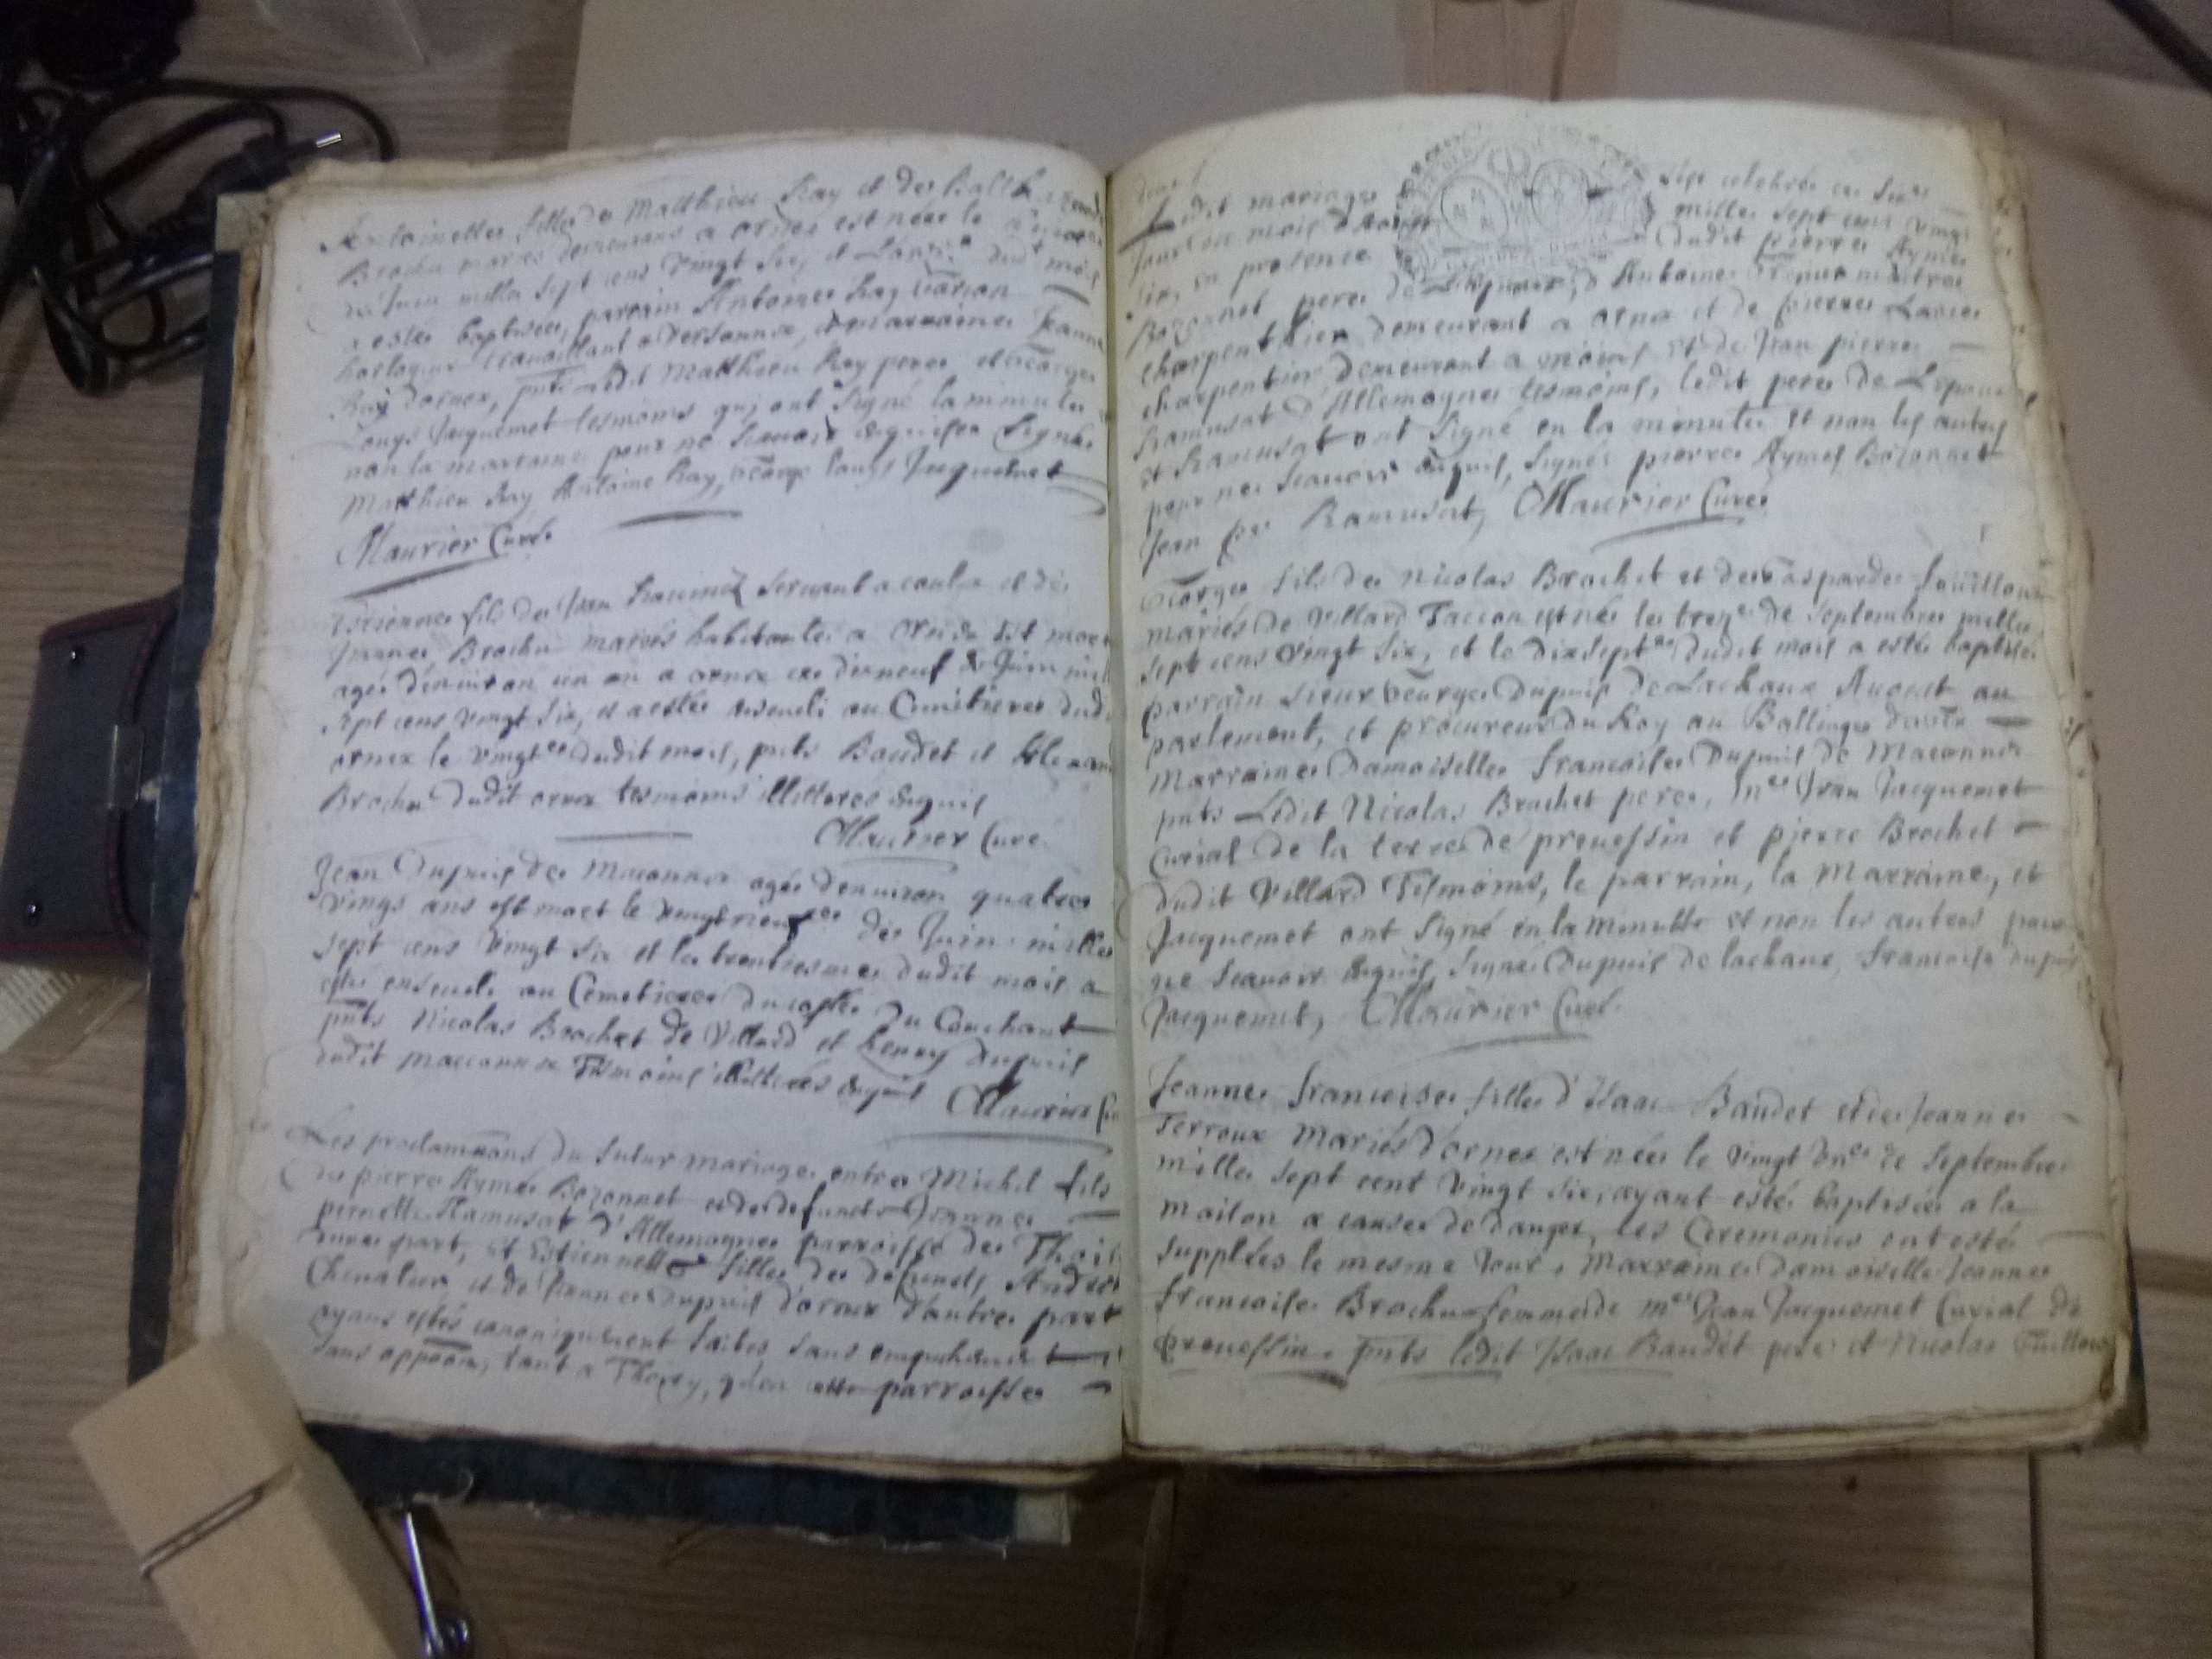 Antoinette fille de Matthieu Ray et de
Brochu mariés demeurans a ornex est née le
de Juin mille sept cens vingt six, et dud mois
a estée baptisée, parrain Antoine Ray garçon
horloger travaillant a Versonnex, & marraine Jeanne
Ray dornex, pnts ledit Matthieu Ray pere, et George
Louys Jacquemet tesmoins qui ont signé la minute
non la marraine pour ne scavoir signés
Matthieu Ray Antoine Ray, George Louys Jacquemet
Maurier Curé
Estienne fils de Jean servant a et de
Jeanne Brochu mariés habitants a Ornex est mort
agé denviron un an a ornex ce dixneuf de Juin mil
sept cens vingt six, et a esté enseveli au Cimetiere dudi
ornex le vingt dudit mois, pnts Baudet et
Brochu dudit ornex tesmoins illitteres
Maurier Curé
Jean Dupuis de Maconnex agé denviron quatre
vings ans est mort le de Juin mille
sept cens vingt six et le trentiesme dudit mois a
esté enseveli au Cemetiere du costé du Couchant
pnts Nicolas Brochet de Villard et henry dupuis
dudit maconnex Tesmoins illitterés
Maurier Cu
Les proclamaons du futur mariage entre Michel fils
de pierre Aymé Bozonnet et de defuncte Jeanne
pernette Ramusat d'Allemogne parroisse de Thoi
d'une part, et Estiennette fille de defuncts André
Chevalier et de Jeanne dupuis d'ornex d'autre part
ayans estés canoniquement faites sans empechement
sans opposon, tant a Thoiry, qu'en cette parroisse
Ledit mariage esté celebré ce
jour du mois d'Aoust mille sept cens vingt
six, en presence dudit pierre Aymé
Bozonnet pere de L'Epoux, d'Antoine maitre
charpenthier demeurant a ornex et de pierre
charpentier demeurant a et de Jean pierre
Ramusat d'Allemogne tesmoins, ledit pere de L'Epoux
et Ramusat ont signé en la minute et non les autres
pour ne scavoir signés pierre Aymé Bozonnet
Jean pre Ramusat, Maurier Curé
George fils de Nicolas Brochet et de Gasparde
mariés de Villard Taccon est né le treze de septembre mille
sept cens vingt six, et le dix sept dudit mois a esté baptisé
parrain sieur George Dupuis de Lachaux Avocat au
parlement, et procureur du Roy au Balliage
Marraine Damoiselle francoise Dupuis de Maconnex
pnts Ledit Nicolas Brochet pere, me Jean Jacquemet
Curial de la terre de prevessin et pierre Brochet
dudit Villard Tesmoins, le parrain, la Marraine, et
Jacquemet ont signé en la Minutte et non les autres pour
ne scavoir signés Dupuis de lachaux, francoise dupuis
Jacquemet, Maurier Curé
Jeanne francoise fille d'Isaac Baudet et de Jeanne
Terroux Mariés d'ornex est née le vingt de Septembre
mille sept cent vingt six, ayant esté baptisée a la
maison a cause de danger, les Ceremonies ont esté
supplées le mesme jour, Marraine damoiselle Jeanne
francoise Brochu femme de me Jean Jacquemet Curial de
prevessin. pnts ledit Isaac Baudet pere et Nicolas